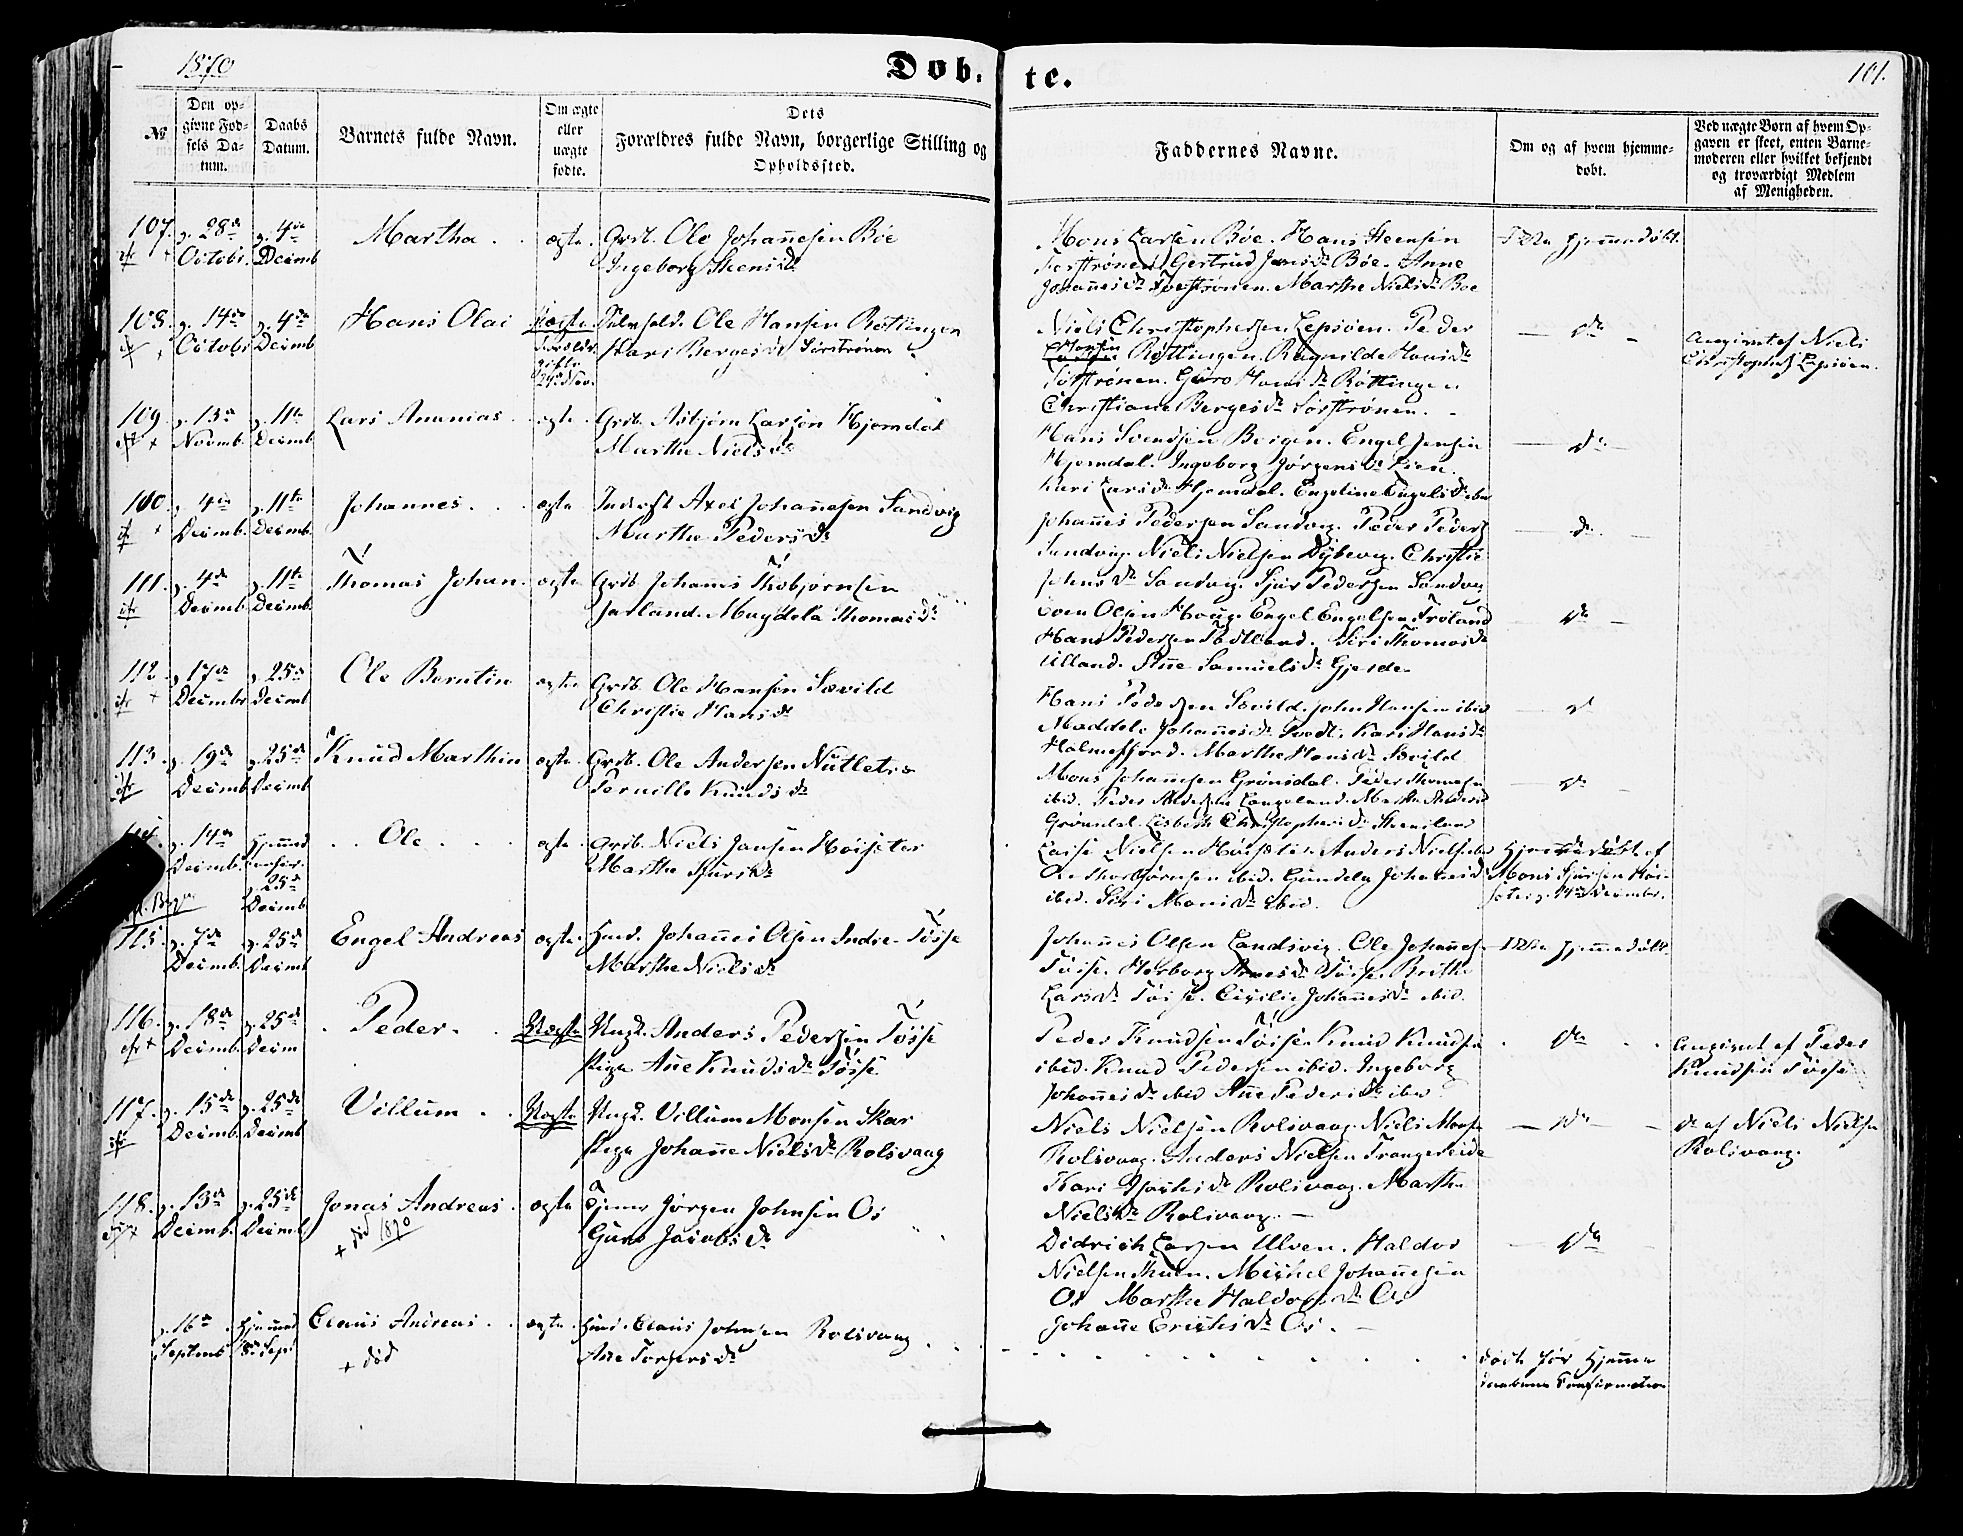 1870
Døb. te.
101.
№
Den op-
givne Fød-
sels Da-
tum.
Daabs
Datum.
Barnets fulde Navn.
Om ægte
eller
uægte
fødte.
Dets
Forældres fulde Navn, borgerlige Stilling og
Opholdssted.
Faddernes Navne.
Om og af hvem hjemme-
døbt.
Ved uægte Børn af hvem Op-
gaven er skeet, enten Barne-
moderen eller hvilket bekjendt
og troværdigt Medlem
af Menigheden.
107. 28de Octobr. 4de Decmb Martha ægte. Grdb. Ole Johannesen Bøe
Ingeborg Steensdr
Mons Larsen Bøe. Hans Steensen
Gertrud Jensdr Bøe. Anne
Johannesdr Marthe Nielsdr Bøe
Ikke hjemmedøbt.
108. 14de Octobr 4de Decmb. Hans Olai Uægte Ole Hansen Røttingen
Kari Bergesdr Sørstrønen
Niels Christophersen Lepsøen. Peder
Hansen Røttingen. Ragnilde Hansdr
Sørstrønen. Guro Hansdr Røttingen
Christiane Bergesdr Sørstrønen.
do
Angivet af Niels
Christophers Lepsøen.
109. 13de Novmb. 11te Decmb. Lars Ananias ægte. Grdb. Asbjørn Larsen Hjorndal
Marthe Nielsdr
Hans Svendsen Bergen. Engel Jensen
Hjorndal. Ingeborg Jørgensdr Lien.
Kari Larsdr Hjorndal. Engeline Engelsdr ibid
do
110. 4de Decmb. 11te Decmb. Johannes. ægte Inderst Axel Johannesen Sandvig
Marthe Pedersdr
Johannes Pedersen Sandvig. Peder Peders
Sandvig. Niels Nielsen Dybevig. Christie
Johnsdr Sandvig. Sjur Pedersen Sandvig
do
111. 4de Decmb. 11te Decmb. Thomas Johan. ægte Grdb. Johannes Thobjørnsen
Jarland. Magdela Thomasdr
Sven Olsen Houge. Engel Engelsen Frøland
Hans Pedersen Siri Thomasdr
Ulland. Ane Samuelsdr Gjerde.
do
112. 17de Decmbr 25de Decmb Ole Berntin ægte Grdb. Ole Hansen Søvild
Christie Hansdr
Hans Pedersen Søvild. John Hansen ibid
Maddele Johannesdr Kari Hansdr
Holmefjord. Marthe Hansdr Søvild
do
113. 19de Decmb 25de Decmb Knud Marthin ægte. Grdb. Ole Andersen
Pernille Knudsdr
Mons Johannesen Grønsdal. Peder Thomasen
ibid. Peder Andersen Langeland. Marthe Andersdr
Grønsdal Lisbeth Christophersdr
do
14de Decmb. 25de Decmb Ole ægte Grdb. Niels Jansen Høiseter
Marthe Sjursdr
Lasse Nielsen Høiseter. Anders Nielsen ibid
Ole Thorbjørnsen ibid. Gundela Johannesdr
ibid. Siri Monsdr ibid.
Hjemmedøbt af
Mons Sjursen Høi-
seter 14de Decembr.
115. 7de Decmb. 25de Decmb Engel Andreas ægte Hmd. Johannes Olsen Indre-Tøsse
Marthe Nielsdr
Johannes Olsen Landsvig. Ole Johannes.
Tøsse. Herborg Tøsse. Brithe
Larsdr Tøsse. Cicilie Johannesdr ibid.
Ikke hjemmedøbt.
116. 18de Decmb. 25de Decm Peder. Uægte Ungk. Anders Pedersen Tøsse
Pige Ane Knudsdr Tøsse
Peder Knudsen Tøsse. Knud Knudsen
ibid. Knud Pedersen ibid. Ingeborg
Johannesdr ibid Ane Pedersdr ibid
do
Angivet af Peder
Knudsen Tøsse
117. 15de Decmb. 25de Decmb Villum Uægte Ungk. Villum Monsen Skar
Pige Johanne Nielsdr Rolsvaag
Niels Nielsen Rolsvaag. Niels Mons
Rolsvaag. Anders Nielsen Trangereide
Kari Rolsvaag. Marthe
Nielsdr Rolsvaag.
do
do af Niels Nielsen
Rolsvaag.
118. 13de Decmb. 25de Decmb. Jonas Andreas ægte Tjener Jørgen Johnsen Os
+ død 1870
Guro Jacobsdr
Didrich Larsen Ulven. Haldor
Nielsen Mikkel Johannesen
Os Marthe Haldorsdr Os
Johanne Erichsdr Os.
do
16de Septmb 18 Sep. Claus Andreas ægte Hmd. Claus Johnsen Rolsvaag
+ død
Ane Torgersdr
død før Hjemme
daabens Confirmation